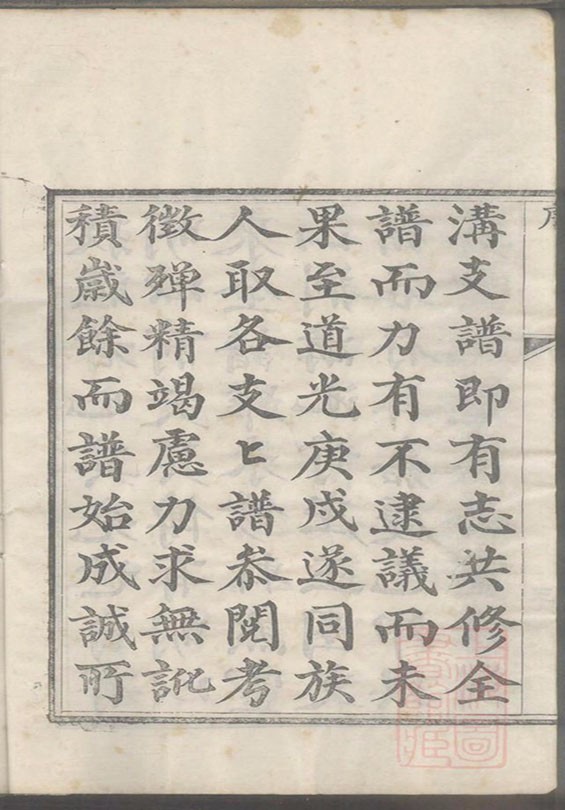 溝支譜即有志共修全
譜而力有不逮議而未
果至道光庚戌遂同族
人取各支〻譜叅閱考
徵殫精竭慮力求無訛
積歲餘而譜始成誠所